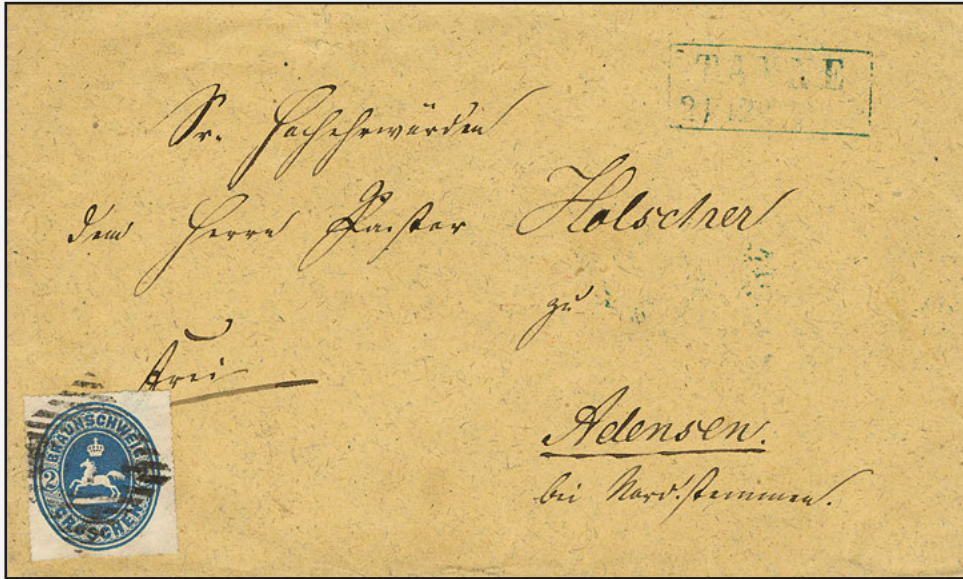 TANNE
Sr. Hochehrwürden
dem Herrn Pastor Holscher
zu
frei
Adensen.
bei Nordstemmen.
BRAUNSCHWEIG
2
GROSCHEN